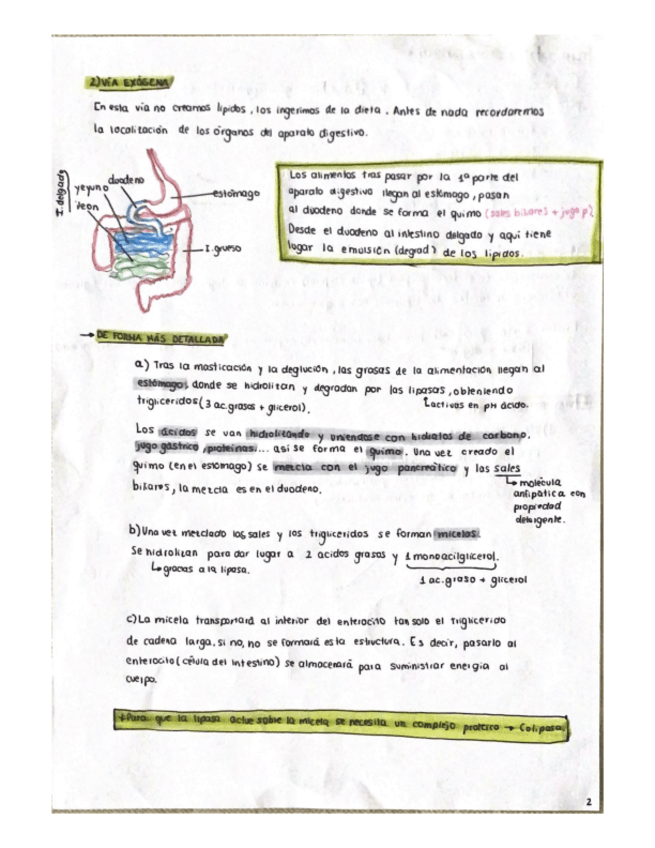 2) VÍA EXÓGENA
En esta vía no creamos lípidos, los ingerimos de la dieta. Antes de nada recordaremos
la localización de los órganos del aparato digestivo.
I. delgado
duodeno
yeyuno
íleon
estómago
I. grueso
Los alimentos tras pasar por la 1ª parte del
aparato digestivo llegan al estómago, pasan
al duodeno donde se forma el quimo (sales biliares + jugo p)
Desde el duodeno al intestino delgado y aquí tiene
lugar la emulsión (degrad) de los lípidos.
→ DE FORMA MÁS DETALLADA
a) Tras la masticación y la deglución, las grasas de la alimentación llegan al
estómago, donde se hidrolizan y degradan por las lipasas, obteniendo
triglicéridos (3 ac. grasos + glicerol).
↳ activas en pH ácido.
Los ácidos se van hidrolizando y uniendose con hidratos de carbono,
jugo gástrico, proteínas... así se forma el quimo. Una vez creado el
quimo (en el estómago) se mezcla con el jugo pancreático y las sales
biliares, la mezcla es en el duodeno.
↳ molécula
antipática con
propiedad
detergente.
b) Una vez mezclado las sales y los triglicéridos se forman micelas.
Se hidrolizan para dar lugar a 2 ácidos grasos y 1 monoacilglicerol.
↳ gracias a la lipasa.
1 ac. graso + glicerol
c) La micela transportará al interior del enterocito tan solo el triglicérido
de cadena larga, si no, no se formará esta estructura. Es decir, pasarlo al
enterocito (célula del intestino) se almacenará para suministrar energía al
cuerpo.
*Para que la lipasa actue sobre la micela se necesita un complejo proteico → Colipasa
2